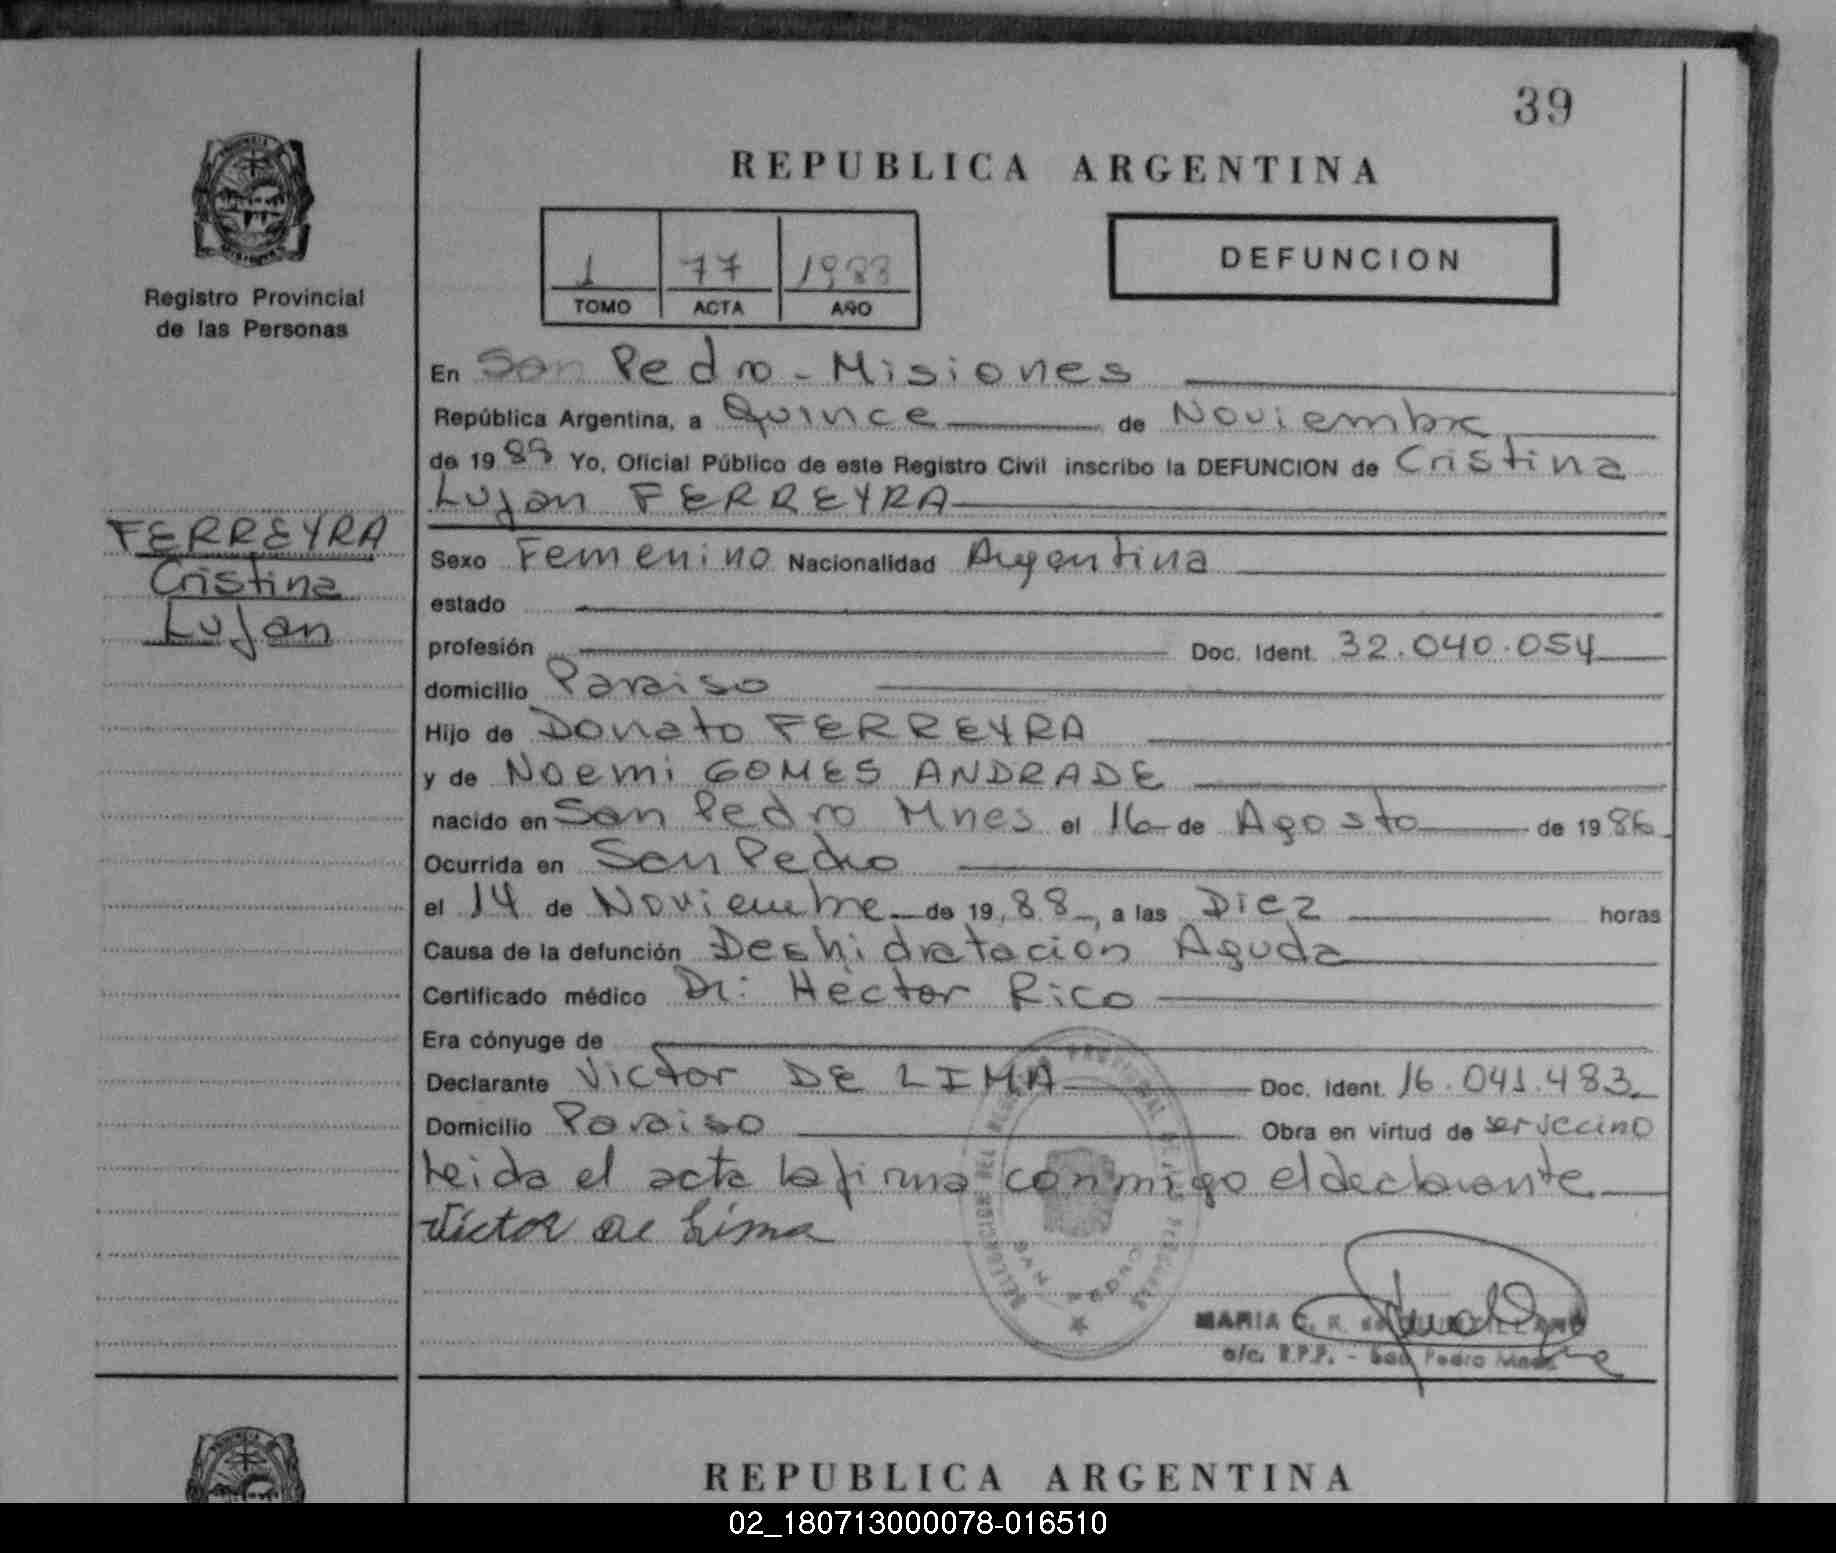 39
REPUBLICA ARGENTINA
Registro Provincial
de las Personas
1 77 1988
TOMO ACTA AÑO
DEFUNCION
En San Pedro - Misiones
República Argentina, a Quince de Noviembre
de 1988 Yo, Oficial Público de este Registro Civil inscribo la DEFUNCION de Cristina
Lujan FERREYRA
FERREYRA
Cristina
Lujan
Sexo Femenino Nacionalidad Argentina
estado
profesión Doc. Ident. 32.040.054
domicilio Paraiso
Hijo de Donato FERREYRA
y de Noemi GOMES ANDRADE
nacido en San Pedro Mnes el 16 de Agosto de 1986
Ocurrida en San Pedro
el 14 de Noviembre de 19 88, a las Diez horas
Causa de la defunción Deshidratacion Aguda
Certificado médico Dr: Héctor Rico
Era cónyuge de
Declarante Victor DE LIMA Doc. Ident. 16.041.483
Domicilio Paraiso Obra en virtud de ser veccino
Leida el acta la firma conmigo el declarante
Victor De Lima
MARIA C. R. de
a/c. R.P.P. - San Pedro Mnes.
REPUBLICA ARGENTINA
02_180713000078-016510